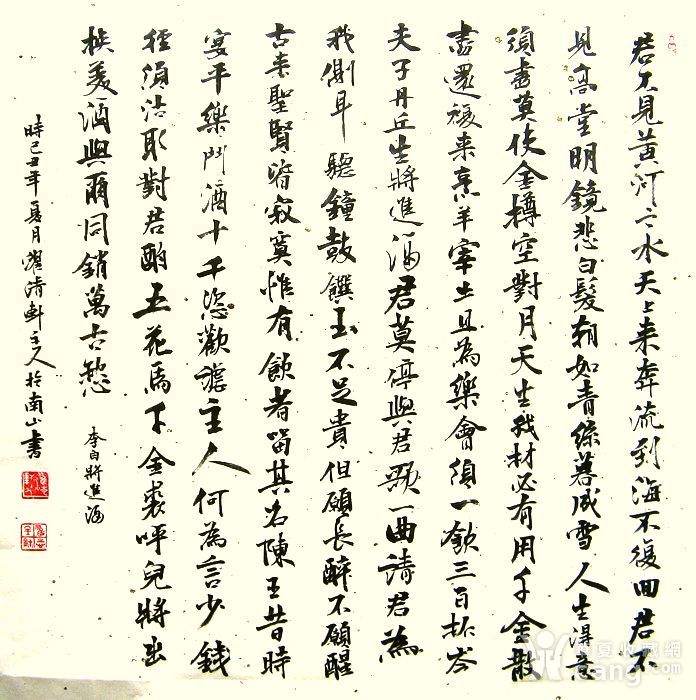 君不見黄河之水天上来奔流到海不復回君不
見高堂明鏡悲白髮朝如青絲暮成雪人生得意
須盡莫使金樽空對月天生我材必有用千金散
盡還復来烹羊宰牛且為樂會須一飲三百杯岑
夫子丹丘生將進酒君莫停與君歌一曲請君為
我側耳聽鐘鼓饌玉不足貴但願長醉不願醒
古来聖賢皆寂寞惟有飲者留其名陳王昔時
宴平樂鬥酒十千恣歡謔主人何為言少錢
徑須沽取對君酌五花馬千金裘呼兒將出
換美酒與爾同銷萬古愁
李白將進酒
時己丑年夏月濯清軒主人於南山書
华夏收藏网
cang.com